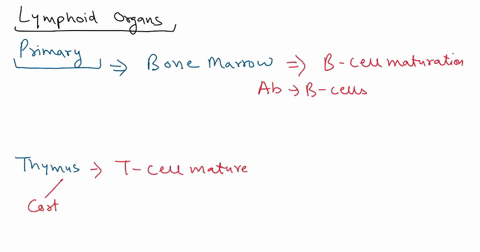 Lymphoid Organs
Primary ⇒ Bone Marrow ⇒ B-cell maturation
Ab → B-cells
Thymus → T-cell mature
Cort